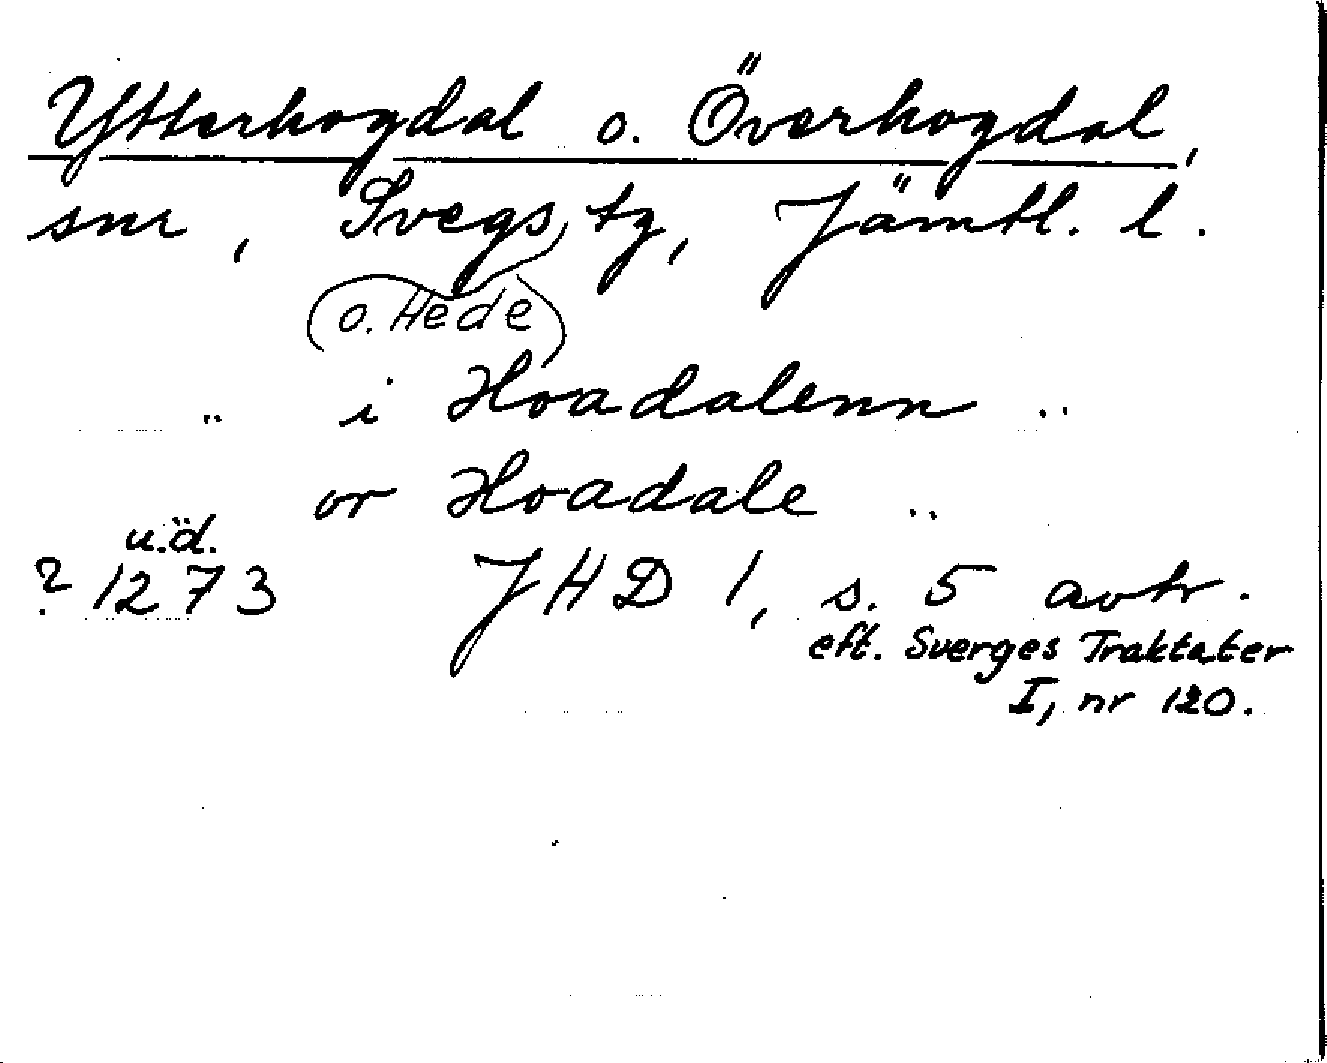 Ytterhogdal o. Överhogdal,
snr, Svegs tg, Jämtl. l.
(o. Hede)
.. i Hoadalenn ..
or Hoadale ..
u.d.
? 1273 JHD 1, s. 5 avtr.
eft. Sverges Traktater
I, nr 120.